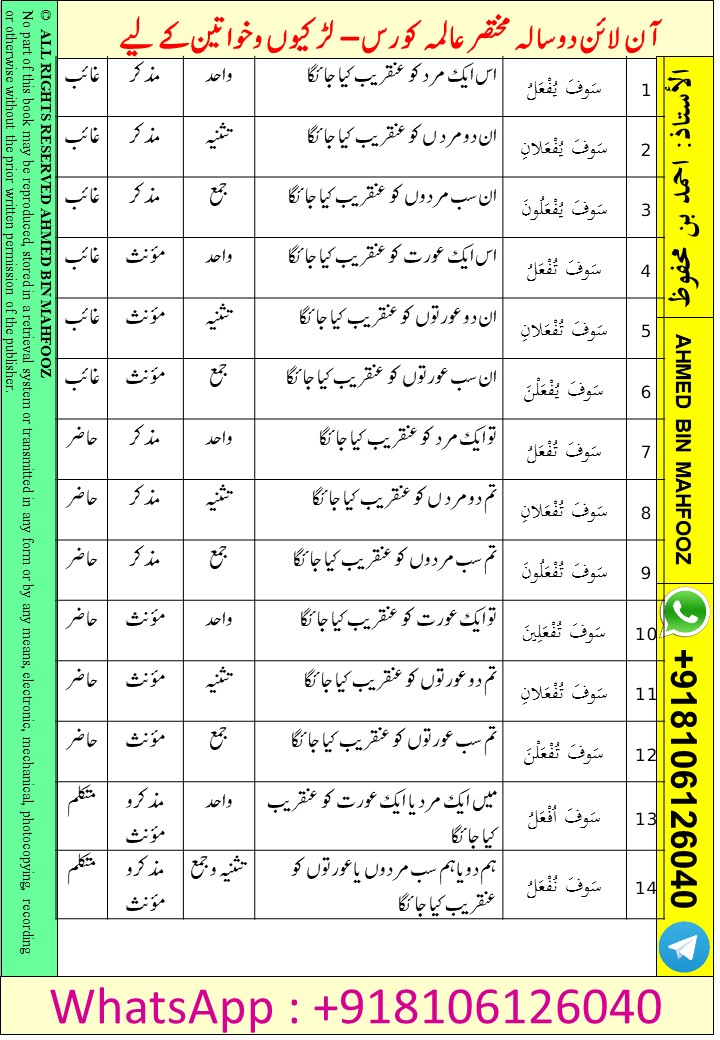 آن لائن دو سالہ مختصر عالمہ کورس – لڑکیوں و خواتین کے لیے
1 سَوفَ يُفْعَلُ اس ایک مرد کو عنقریب کیا جائگا واحد مذکر غائب
2 سَوفَ يُفْعَلانِ ان دو مردں کو عنقریب کیا جائگا تثنیہ مذکر غائب
3 سَوفَ يُفْعَلُونَ ان سب مردوں کو عنقریب کیا جائگا جمع مذکر غائب
4 سَوفَ تُفْعَلُ اس ایک عورت کو عنقریب کیا جائگا واحد مؤنث غائب
5 سَوفَ تُفْعَلانِ ان دو عورتوں کو عنقریب کیا جائگا تثنیہ مؤنث غائب
6 سَوفَ يُفْعَلْنَ ان سب عورتوں کو عنقریب کیا جائگا جمع مؤنث غائب
7 سَوفَ تُفْعَلُ تو ایک مرد کو عنقریب کیا جائگا واحد مذکر حاضر
8 سَوفَ تُفْعَلانِ تم دو مردں کو عنقریب کیا جائگا تثنیہ مذکر حاضر
9 سَوفَ تُفْعَلُونَ تم سب مردوں کو عنقریب کیا جائگا جمع مذکر حاضر
10 سَوفَ تُفْعَلِينَ تو ایک عورت کو عنقریب کیا جائگا واحد مؤنث حاضر
11 سَوفَ تُفْعَلانِ تم دو عورتوں کو عنقریب کیا جائگا تثنیہ مؤنث حاضر
12 سَوفَ تُفْعَلْنَ تم سب عورتوں کو عنقریب کیا جائگا جمع مؤنث حاضر
13 سَوفَ اُفْعَلُ میں ایک مرد یا ایک عورت کو عنقریب واحد مذکر و متکلم
کیا جائگا مؤنث
14 سَوفَ نُفْعَلُ ہم دو یا ہم سب مردوں یا عورتوں کو تثنیہ و جمع مذکر و متکلم
عنقریب کیا جائگا مؤنث
الأستاذ: احمد بن محفوظ
AHMED BIN MAHFOOZ
+918106126040
© ALL RIGHTS RESERVED AHMED BIN MAHFOOZ
No part of this book may be reproduced, stored in a retrieval system or transmitted in any form or by any means, electronic, mechanical, photocopying, recording
or otherwise without the prior written permission of the publisher.
WhatsApp : +918106126040